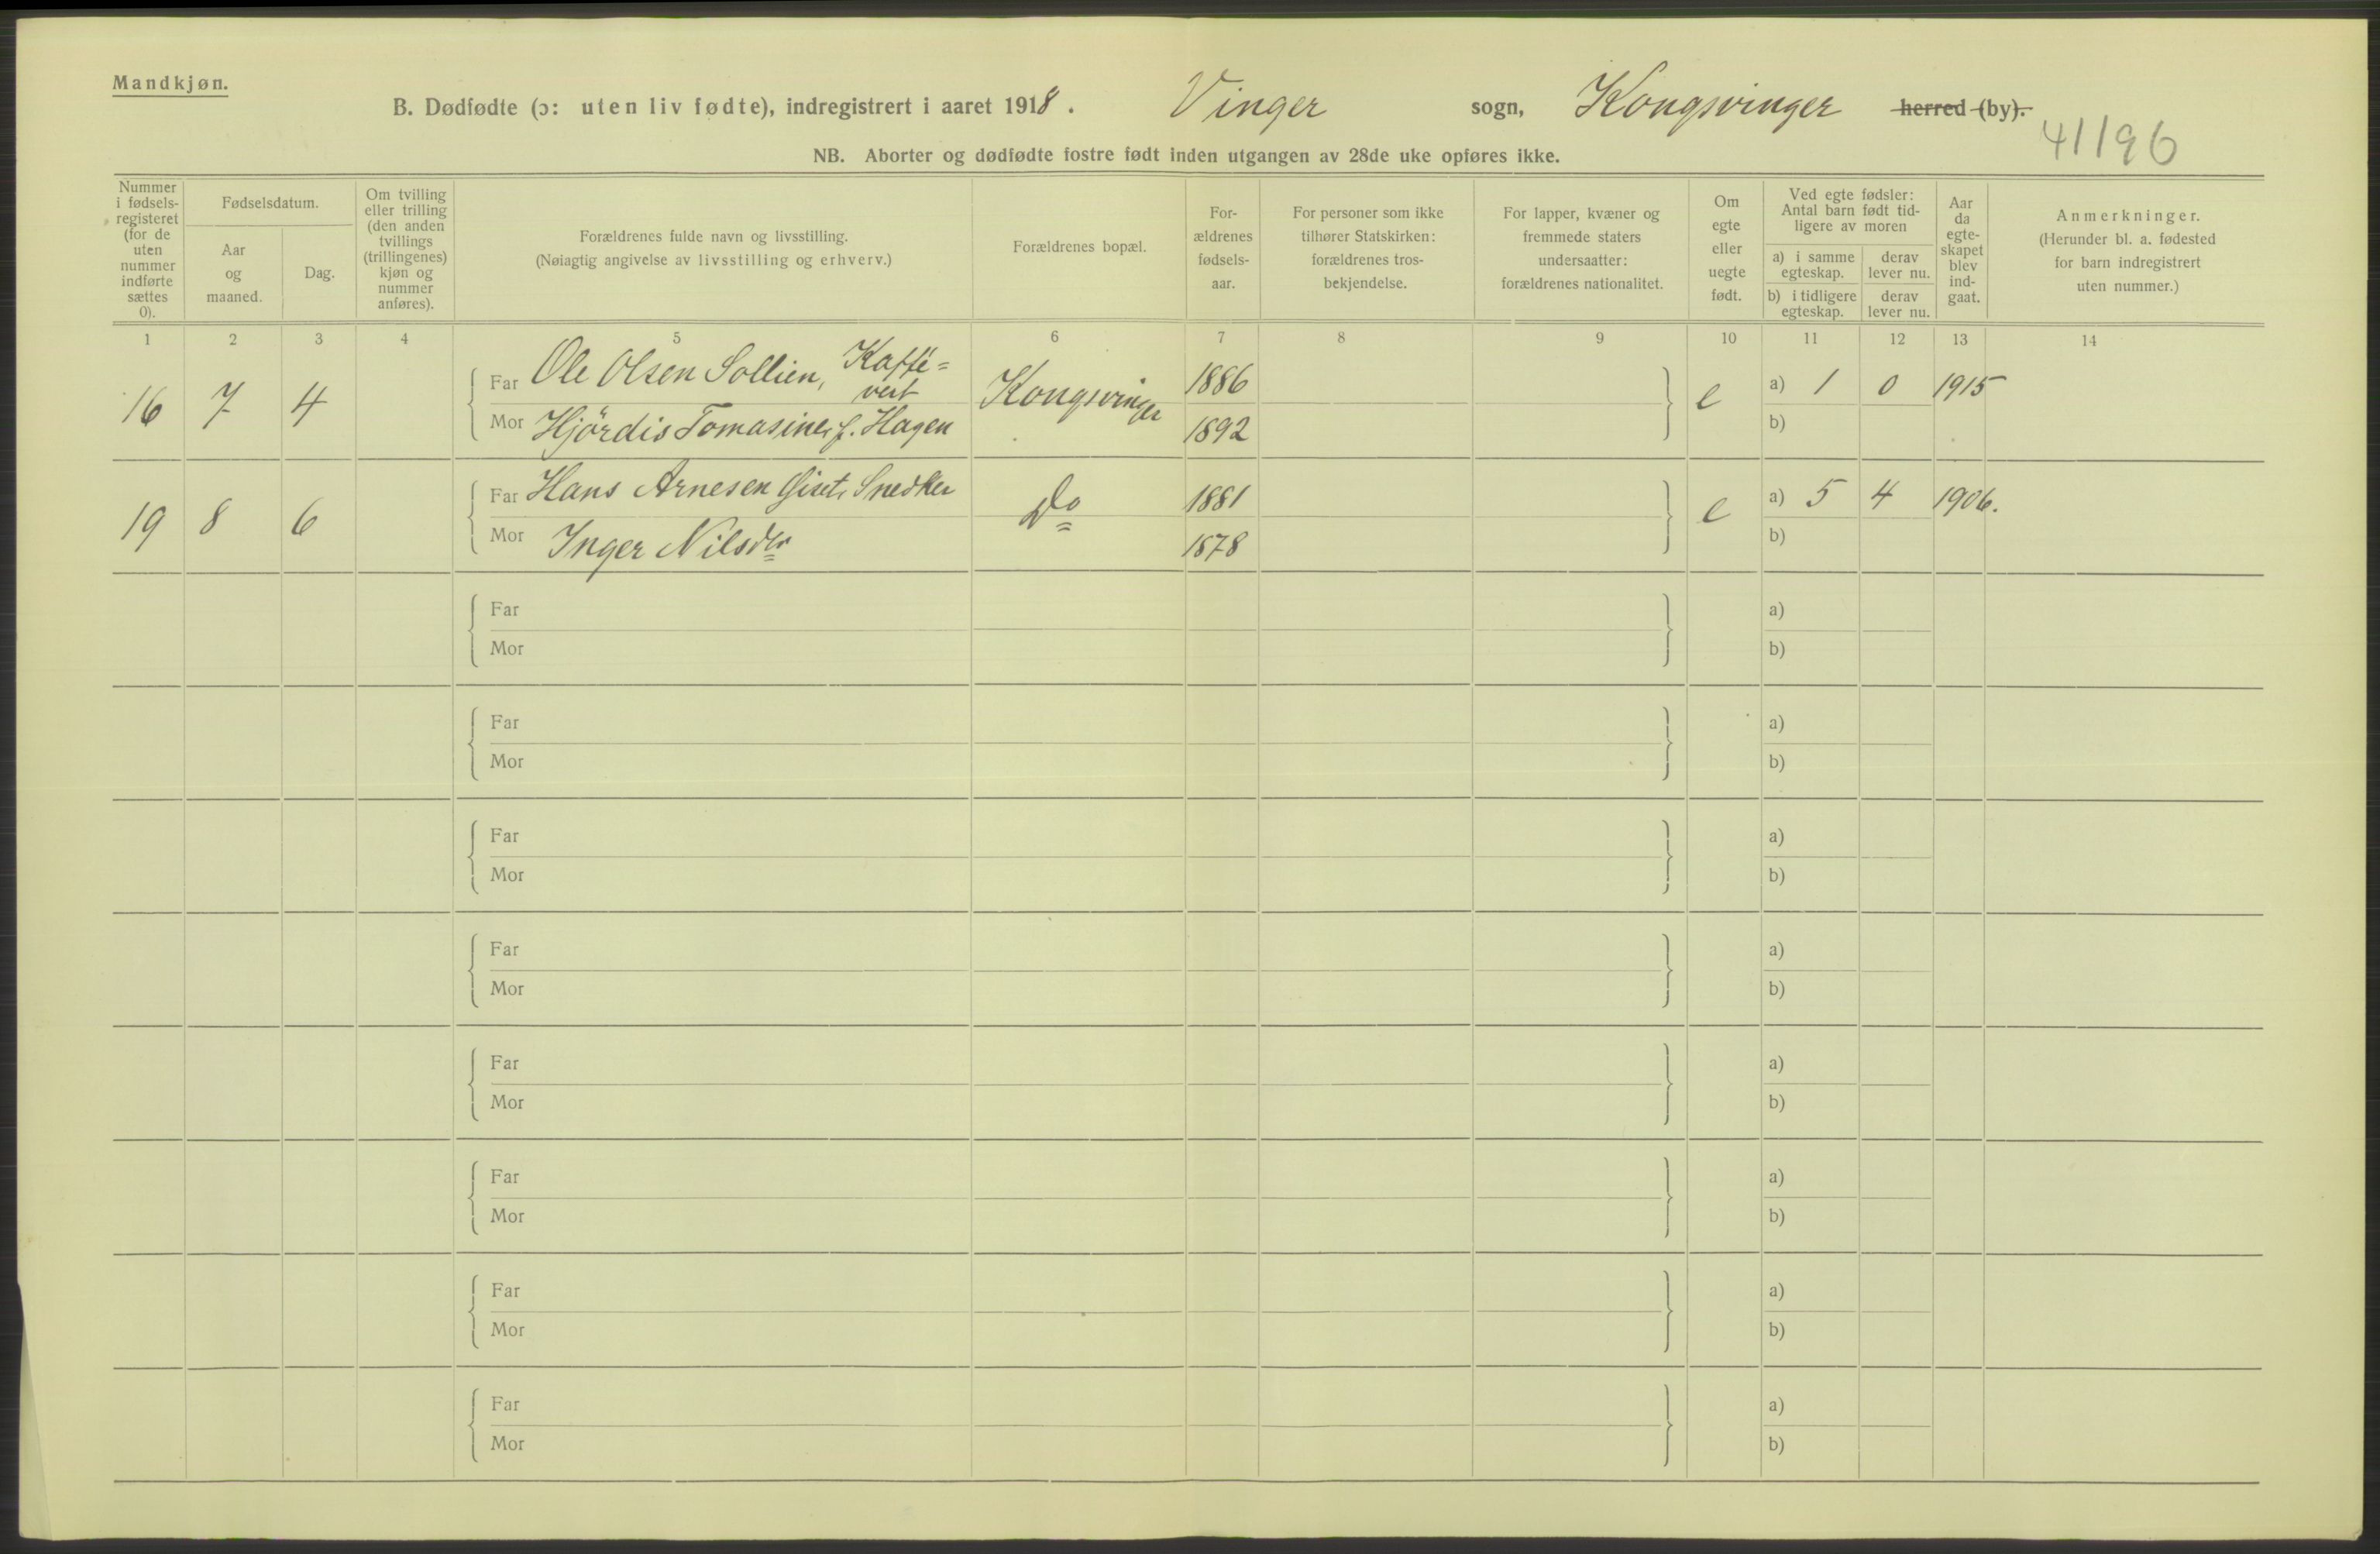 Mandkjøn.
B. Dødfødte (ɔ: uten liv fødte), indregistrert i aaret 1918. Vinger sogn, Kongsvinger herred (by).
41196
NB. Aborter og dødfødte fostre født inden utgangen av 28de uke opføres ikke.
Nummer i fødsels-registeret (for de uten nummer indførte sættes 0).
Fødselsdatum.
Aar og maaned.
Dag.
Om tvilling eller trilling (den anden tvillings (trillingenes) kjøn og nummer anføres).
Forældrenes fulde navn og livsstilling.
(Nøiagtig angivelse av livsstilling og erhverv.)
Forældrenes bopæl.
For-ældrenes fødsels-aar.
For personer som ikke tilhører Statskirken: forældrenes tros-bekjendelse.
For lapper, kvæner og fremmede staters undersaatter: forældrenes nationalitet.
Om egte eller uegte født.
Ved egte fødsler: Antal barn født tid-ligere av moren
a) i samme egteskap.
derav lever nu.
b) i tidligere egteskap.
derav lever nu.
Aar da egte-skapet blev ind-gaat.
Anmerkninger.
(Herunder bl. a. fødested for barn indregistrert uten nummer.)
1 2 3 4 5 6 7 8 9 10 11 12 13 14
16 7 4 Far Ole Olsen Sollien, Kaffé=vert Kongsvinger 1886 e a) 1 0 1915
Mor Hjördis Tomasine, f. Hagen 1892 b)
19 8 6 Far Hans Arnesen Snedker Do 1881 e a) 5 4 1906.
Mor Inger Nilsdr 1878 b)
Far a)
Mor b)
Far a)
Mor b)
Far a)
Mor b)
Far a)
Mor b)
Far a)
Mor b)
Far a)
Mor b)
Far a)
Mor b)
Far a)
Mor b)